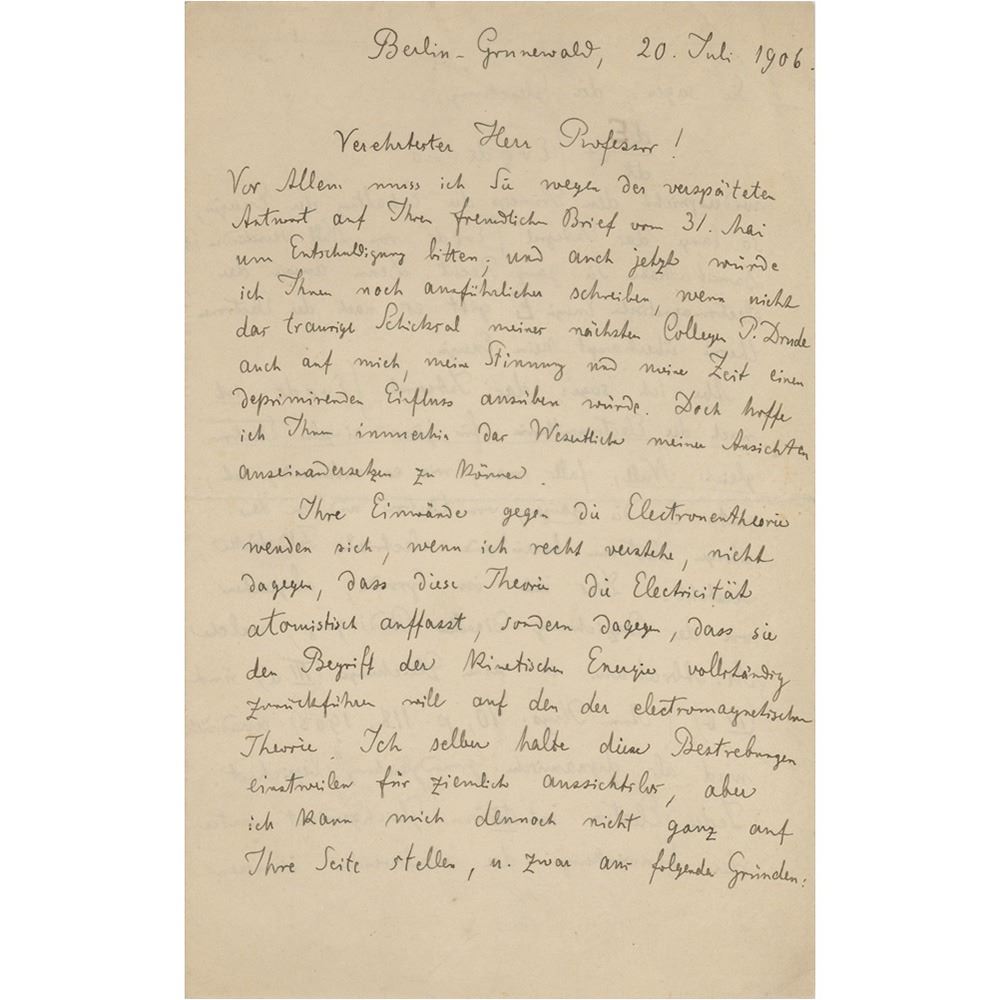 Berlin-Grunewald, 20. Juli 1906.
Verehrtester Herr Professor!
Vor Allem muss ich Sie wegen der verspäteten
Antwort auf Ihren freundlichen Brief vom 31. Mai
um Entschuldigung bitten; und auch jetzt würde
ich Ihnen noch ausführlicher schreiben, wenn nicht
das traurige Schicksal meines nächsten Collegen P. Drude
auch auf mich, meine Stimmung und meine Zeit einen
deprimirenden Einfluss ausüben würde. Doch hoffe
ich Ihnen immerhin das Wesentliche meiner Ansichten
auseinandersetzen zu können.
Ihre Einwände gegen die Electronentheorie
wenden sich, wenn ich recht verstehe, nicht
dagegen, dass diese Theorie die Electricität
atomistisch auffasst, sondern dagegen, dass sie
den Begriff der kinetischen Energie vollständig
zurückführen will auf den der electromagnetischen
Theorie. Ich selber halte diese Bestrebungen
einstweilen für ziemlich aussichtslos, aber
ich kann mich dennoch nicht ganz auf
Ihre Seite stellen, u. zwar aus folgenden Gründen: